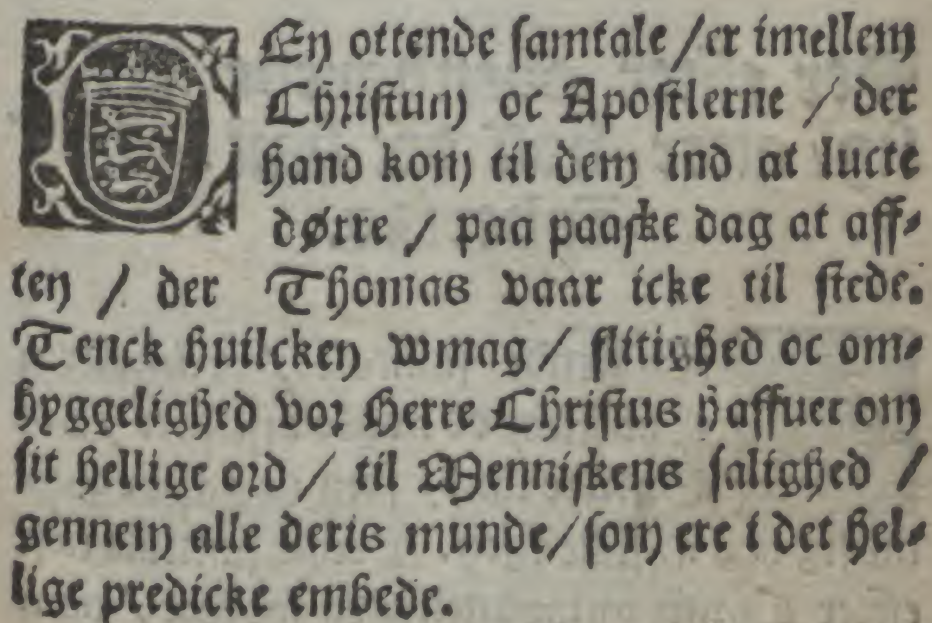 DEn ottende samtale / er imellem
Christum oc Apostlerne / der
hand kom til dem ind at lucte
dørre / paa paaske dag at aff⸗
ten / der Thomas vaar icke til stede.
Tenck huilcken wmag / flitighed oc om⸗
hyggelighed vor Herre Christus haffuer om
sit hellige ord / til Menniskens salighed /
gennem alle deris munde / som ere i det hel⸗
lige predicke embede.